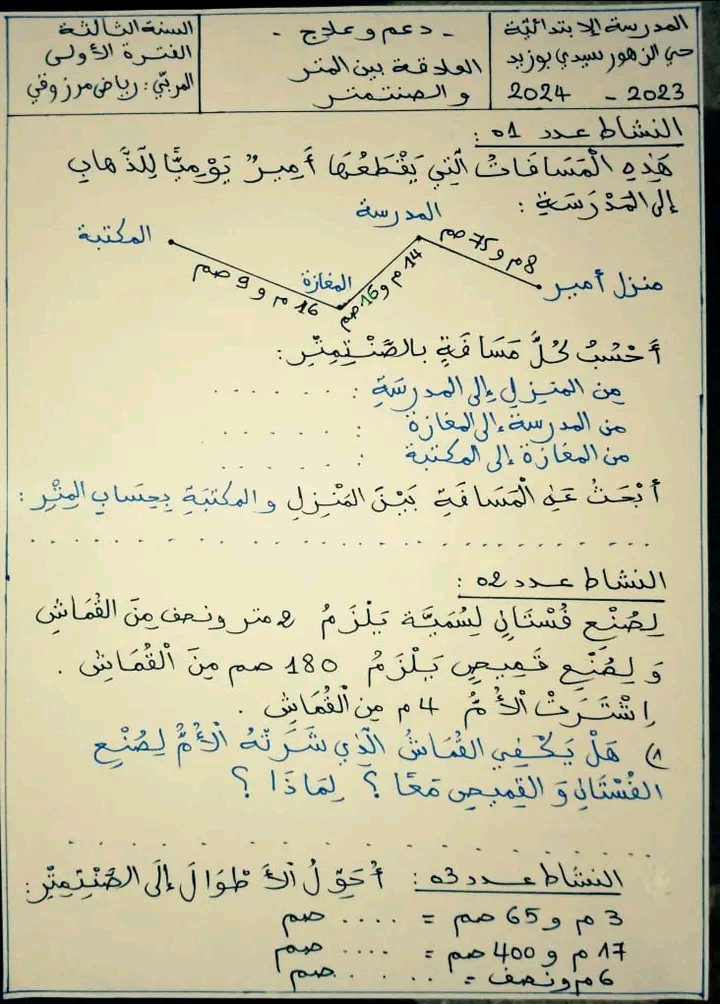 المدرسة الابتدائية
حي الزهور سيدي بوزيد
2023 - 2024
- دعم وعلاج -
العلاقة بين المتر
والصنتمتر
السنة الثالثة
الفترة الأولى
المربّي: رياض مرزوقي
النشاط عدد 01:
هَذِهِ الْمَسَافَاتُ الَّتِي يَقْطَعُهَا أَمِيرٌ يَوْمِيًّا لِلذَّهَابِ
إِلَى الْمَدْرَسَةِ:
المدرسة
المكتبة
8م و 75 صم
المغازة
14 م و 16 صم
منزل أمير
16 م و 9 صم
أَحْسُبُ كُلَّ مَسَافَةٍ بِالصَّنْتِمِتْرِ:
من المنزل إلى المدرسة : . . . . . .
من المدرسة إلى المغازة : . . . . . .
من المغازة إلى المكتبة : . . . . . .
أَبْحَثُ عَنِ الْمَسَافَةِ بَيْنَ الْمَنْزِلِ وَالمكتبَةِ بِحِسَابِ المِتْرِ:
النشاط عدد 02:
لِصُنْعِ فُسْتَانٍ لِسُمَيَّة يَلْزَمُ 2 متر ونصف مِنَ القُمَاشِ
وَ لِصُنْعِ قَمِيصٍ يَلْزَمُ 180 صم مِنَ الْقُمَاشِ .
اِشْتَرَتْ الْأُمُّ 4 م مِن الْقُمَاشِ .
1) هَلْ يَكْفِي القُمَاشُ الَّذِي شَرَتْهُ الْأُمُّ لِصُنْعِ
الفُسْتَانِ وَ القَمِيصِ مَعًا ؟ لِمَاذَا ؟
النشاط عدد 03: أُحَوِّلُ الْأَطْوَالَ إِلَى الصَّنْتِمِتْرِ:
3 م و 65 صم = .... صم
17 م و 400 صم = .... صم
6 م ونصف = ...... صم